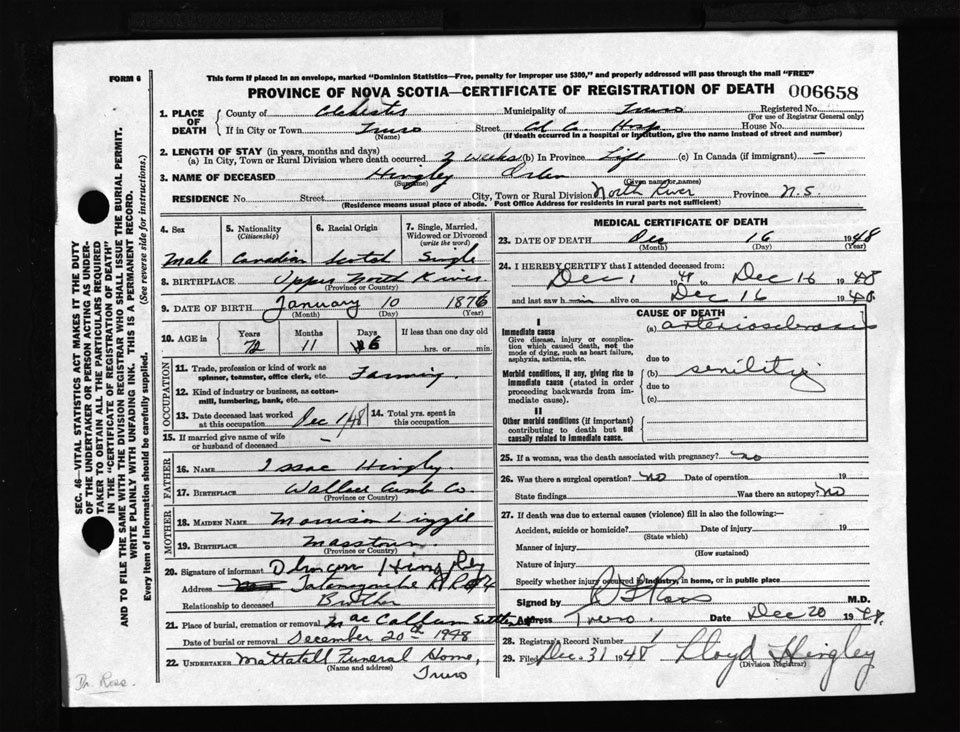 FORM 6
This form if placed in an envelope, marked "Dominion Statistics—Free, penalty for improper use $300," and properly addressed will pass through the mail "FREE"
PROVINCE OF NOVA SCOTIA—CERTIFICATE OF REGISTRATION OF DEATH 006658
SEC. 46—VITAL STATISTICS ACT MAKES IT THE DUTY
OF THE UNDERTAKER OR PERSON ACTING AS UNDER-
TAKER TO OBTAIN ALL THE PARTICULARS REQUIRED
IN THE "CERTIFICATE OF REGISTRATION OF DEATH"
AND TO FILE THE SAME WITH THE DIVISION REGISTRAR WHO SHALL ISSUE THE BURIAL PERMIT.
WRITE PLAINLY WITH UNFADING INK. THIS IS A PERMANENT RECORD.
Every item of Information should be carefully supplied. (See reverse side for instructions.)
1. PLACE OF DEATH
County of Colchester Municipality of Truro Registered No.
(For use of Registrar General only)
If in City or Town Truro Street Hosp. House No.
(Name) (If death occurred in a hospital or institution, give the name instead of street and number)
2. LENGTH OF STAY (in years, months and days)
(a) In City, Town or Rural Division where death occurred 2 weeks (b) In Province Life (c) In Canada (if immigrant) —
3. NAME OF DECEASED Hingley
(Surname) (Given name or names)
RESIDENCE No. Street City, Town or Rural Division North River Province N.S.
(Residence means usual place of abode. Post Office Address for residents in rural parts not sufficient)
4. Sex
Male
5. Nationality
(Citizenship)
Canadian
6. Racial Origin
Scotch
7. Single, Married,
Widowed or Divorced
(write the word)
Single
8. BIRTHPLACE Upper North River
(Province or Country)
9. DATE OF BIRTH January 10 1876
(Month) (Day) (Year)
10. AGE in
Years Months Days If less than one day old
72 11 6 hrs. or min.
OCCUPATION
11. Trade, profession or kind of work as
spinner, teamster, office clerk, etc. Farming
12. Kind of industry or business, as cotton-
mill, lumbering, bank, etc.
13. Date deceased last worked
at this occupation Dec 1/48
14. Total yrs. spent in
this occupation
15. If married give name of wife
or husband of deceased –
FATHER
16. NAME Issac Hingley.
17. BIRTHPLACE Wallace Cumb Co.
(Province or Country)
MOTHER
18. MAIDEN NAME Morrison Lizzie
19. BIRTHPLACE Masstown
(Province or Country)
20. Signature of informant Hingley
Address Tatamagouche R R #4
Relationship to deceased Brother
21. Place of burial, cremation or removal MacCallum Settle
Date of burial or removal December 20th 1948
22. UNDERTAKER Mattatall Funeral Home,
(Name and address) Truro
MEDICAL CERTIFICATE OF DEATH
23. DATE OF DEATH Dec 16 1948
(Month) (Day) (Year)
24. I HEREBY CERTIFY that I attended deceased from:
Dec 1 19 to Dec 16 1948
and last saw h im alive on Dec 16 1948
CAUSE OF DEATH
I
Immediate cause
Give disease, injury or complica-
tion which caused death, not the
mode of dying, such as heart failure,
asphyxia, asthenia, etc.
(a) arteriosclerosis
due to
Morbid conditions, if any, giving rise to
immediate cause (stated in order
proceeding backwards from im-
mediate cause).
(b) senility
due to
(c)
II
Other morbid conditions (if important)
contributing to death but not
causally related to immediate cause.
25. If a woman, was the death associated with pregnancy? no
26. Was there a surgical operation? no Date of operation 19
State findings Was there an autopsy? no
27. If death was due to external causes (violence) fill in also the following:—
Accident, suicide or homicide? Date of injury 19
(State which)
Manner of injury
(How sustained)
Nature of injury
Specify whether injury occurred in industry, in home, or in public place
Signed by Ross M.D.
Address Truro. Date Dec 20 1948.
28. Registrar's Record Number 1
29. Filed Dec. 31 1948 Lloyd Hingley
(Division Registrar)
Dr. Ross.